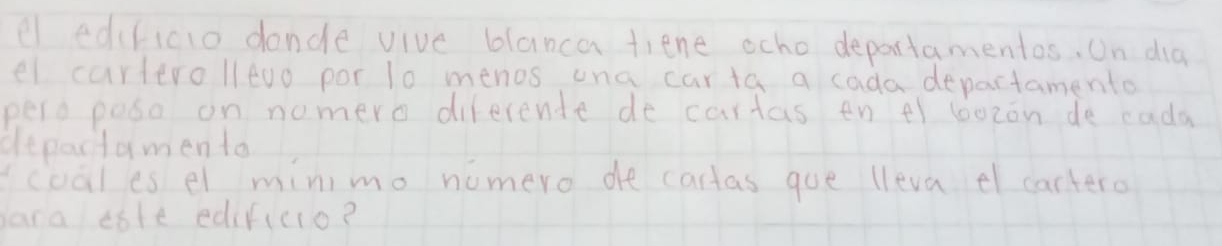 el edificio donde vive blanca tiene ocho departamentos. Un dia
el cartero llevo por lo menos una carta a cada departamento
pero poso un nomero diferente de cartas en el bozón de cada
departamento
¿cuál es el mínimo número de cartas que lleva el cartero
para este edificio?